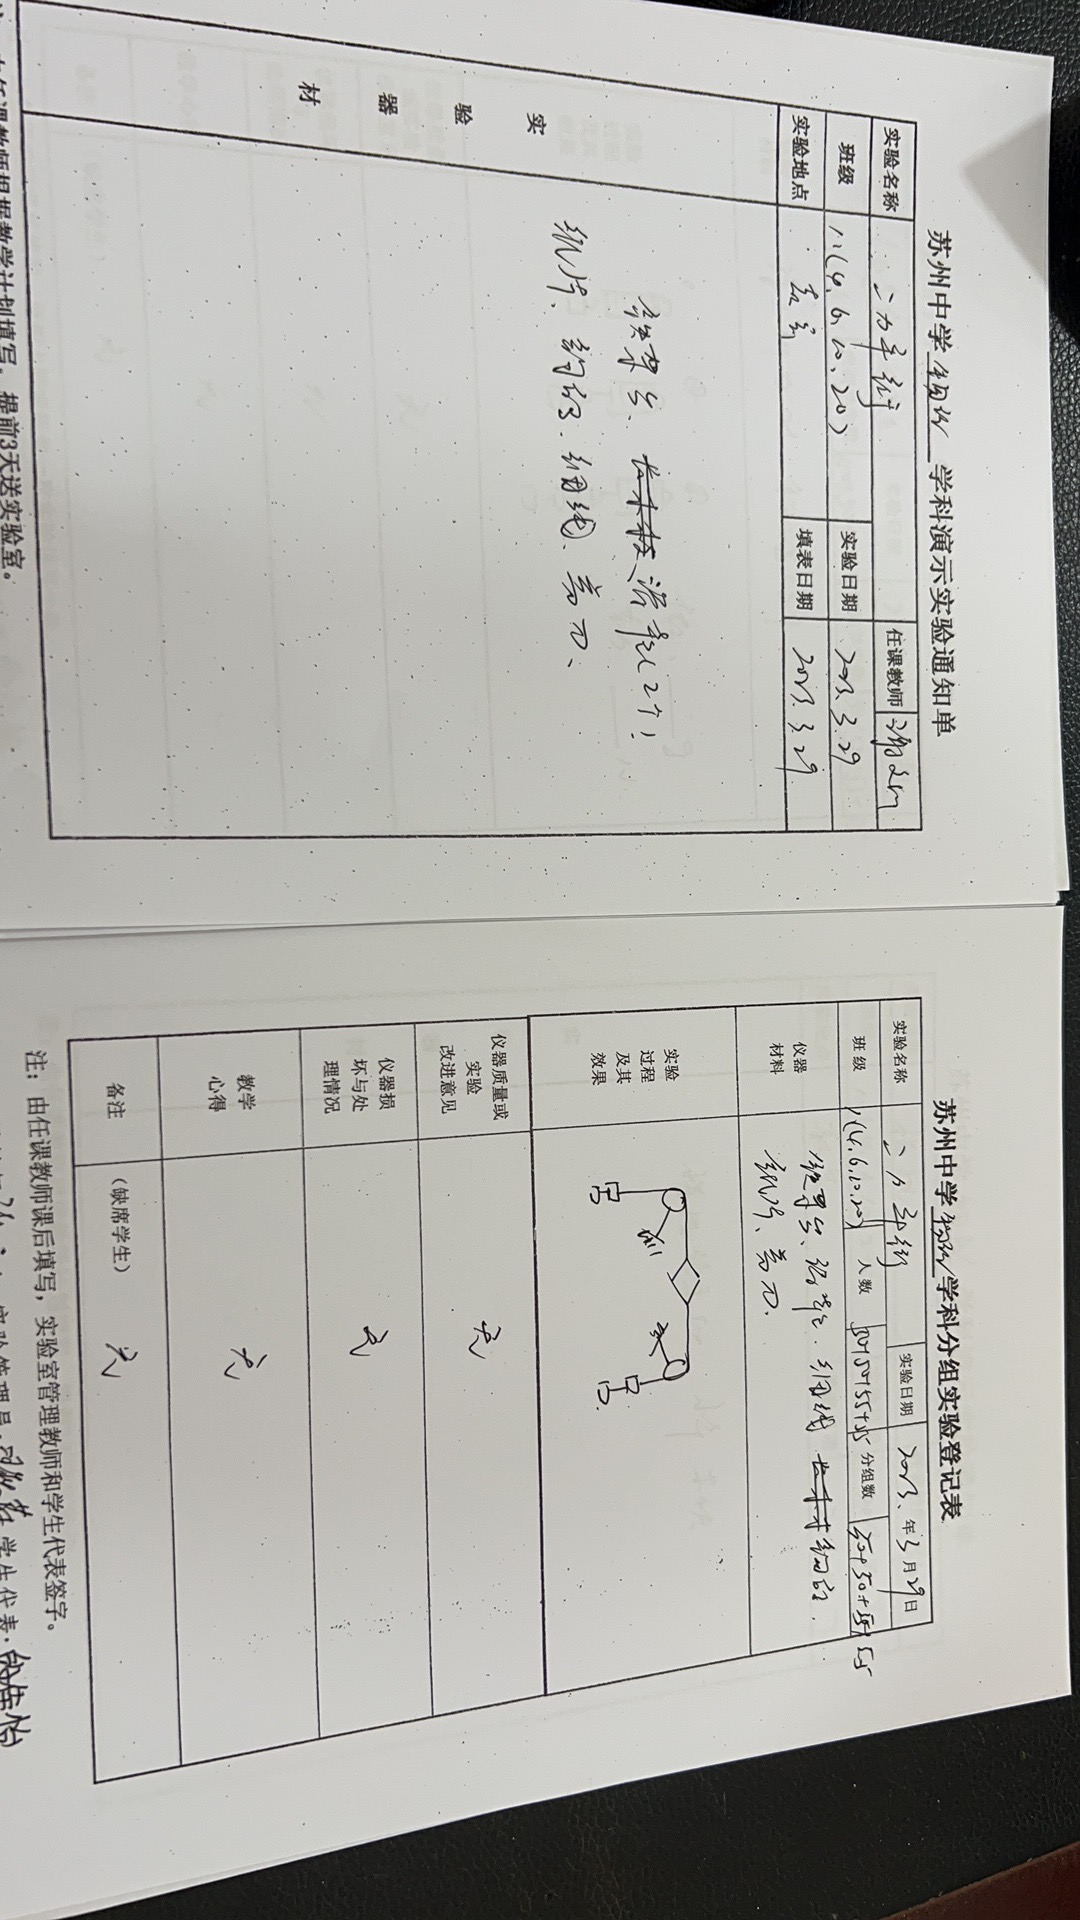 苏州中学物理学科演示实验通知单
实验名称 二力平衡 任课教师
班级 八(4.6.10.20) 实验日期 2023.3.29
实验地点 填表日期 2023.3.29
实验器材
铁架台、长木板、滑轮(2个)
纸片、钩码、细线、剪刀、
任课教师根据教学计划填写，提前3天送实验室。
苏州中学物理学科分组实验登记表
实验名称 二力平衡 实验日期 2023年3月29日
班级 八(4.6.10.20) 人数 分组数
仪器材料 铁架台、滑轮、细线 钩码
纸片、剪刀.
实验过程及其效果
仪器质量或实验改进意见 无
仪器损坏与处理情况 无
教学心得 无
备注 (缺席学生) 无
注：由任课教师课后填写，实验室管理教师和学生代表签字。
实验管理员: 学生代表: